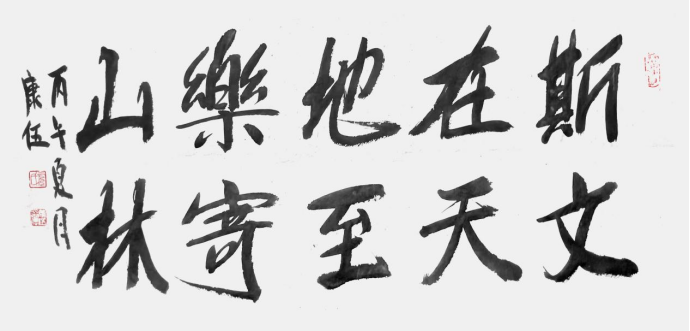 斯文
在天
地至
樂寄
山林
丙午夏月
康伍